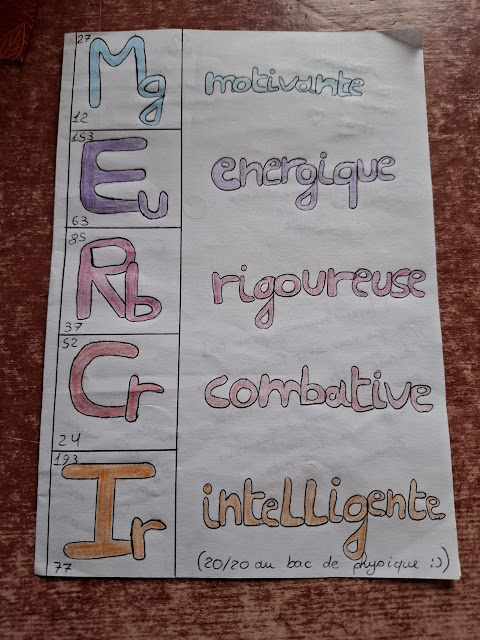 27
Mg motivante
12
153
Eu energique
63
85
Rb rigoureuse
37
52
Cr combative
24
193
Ir intelligente
77 (20/20 au bac de physique :))